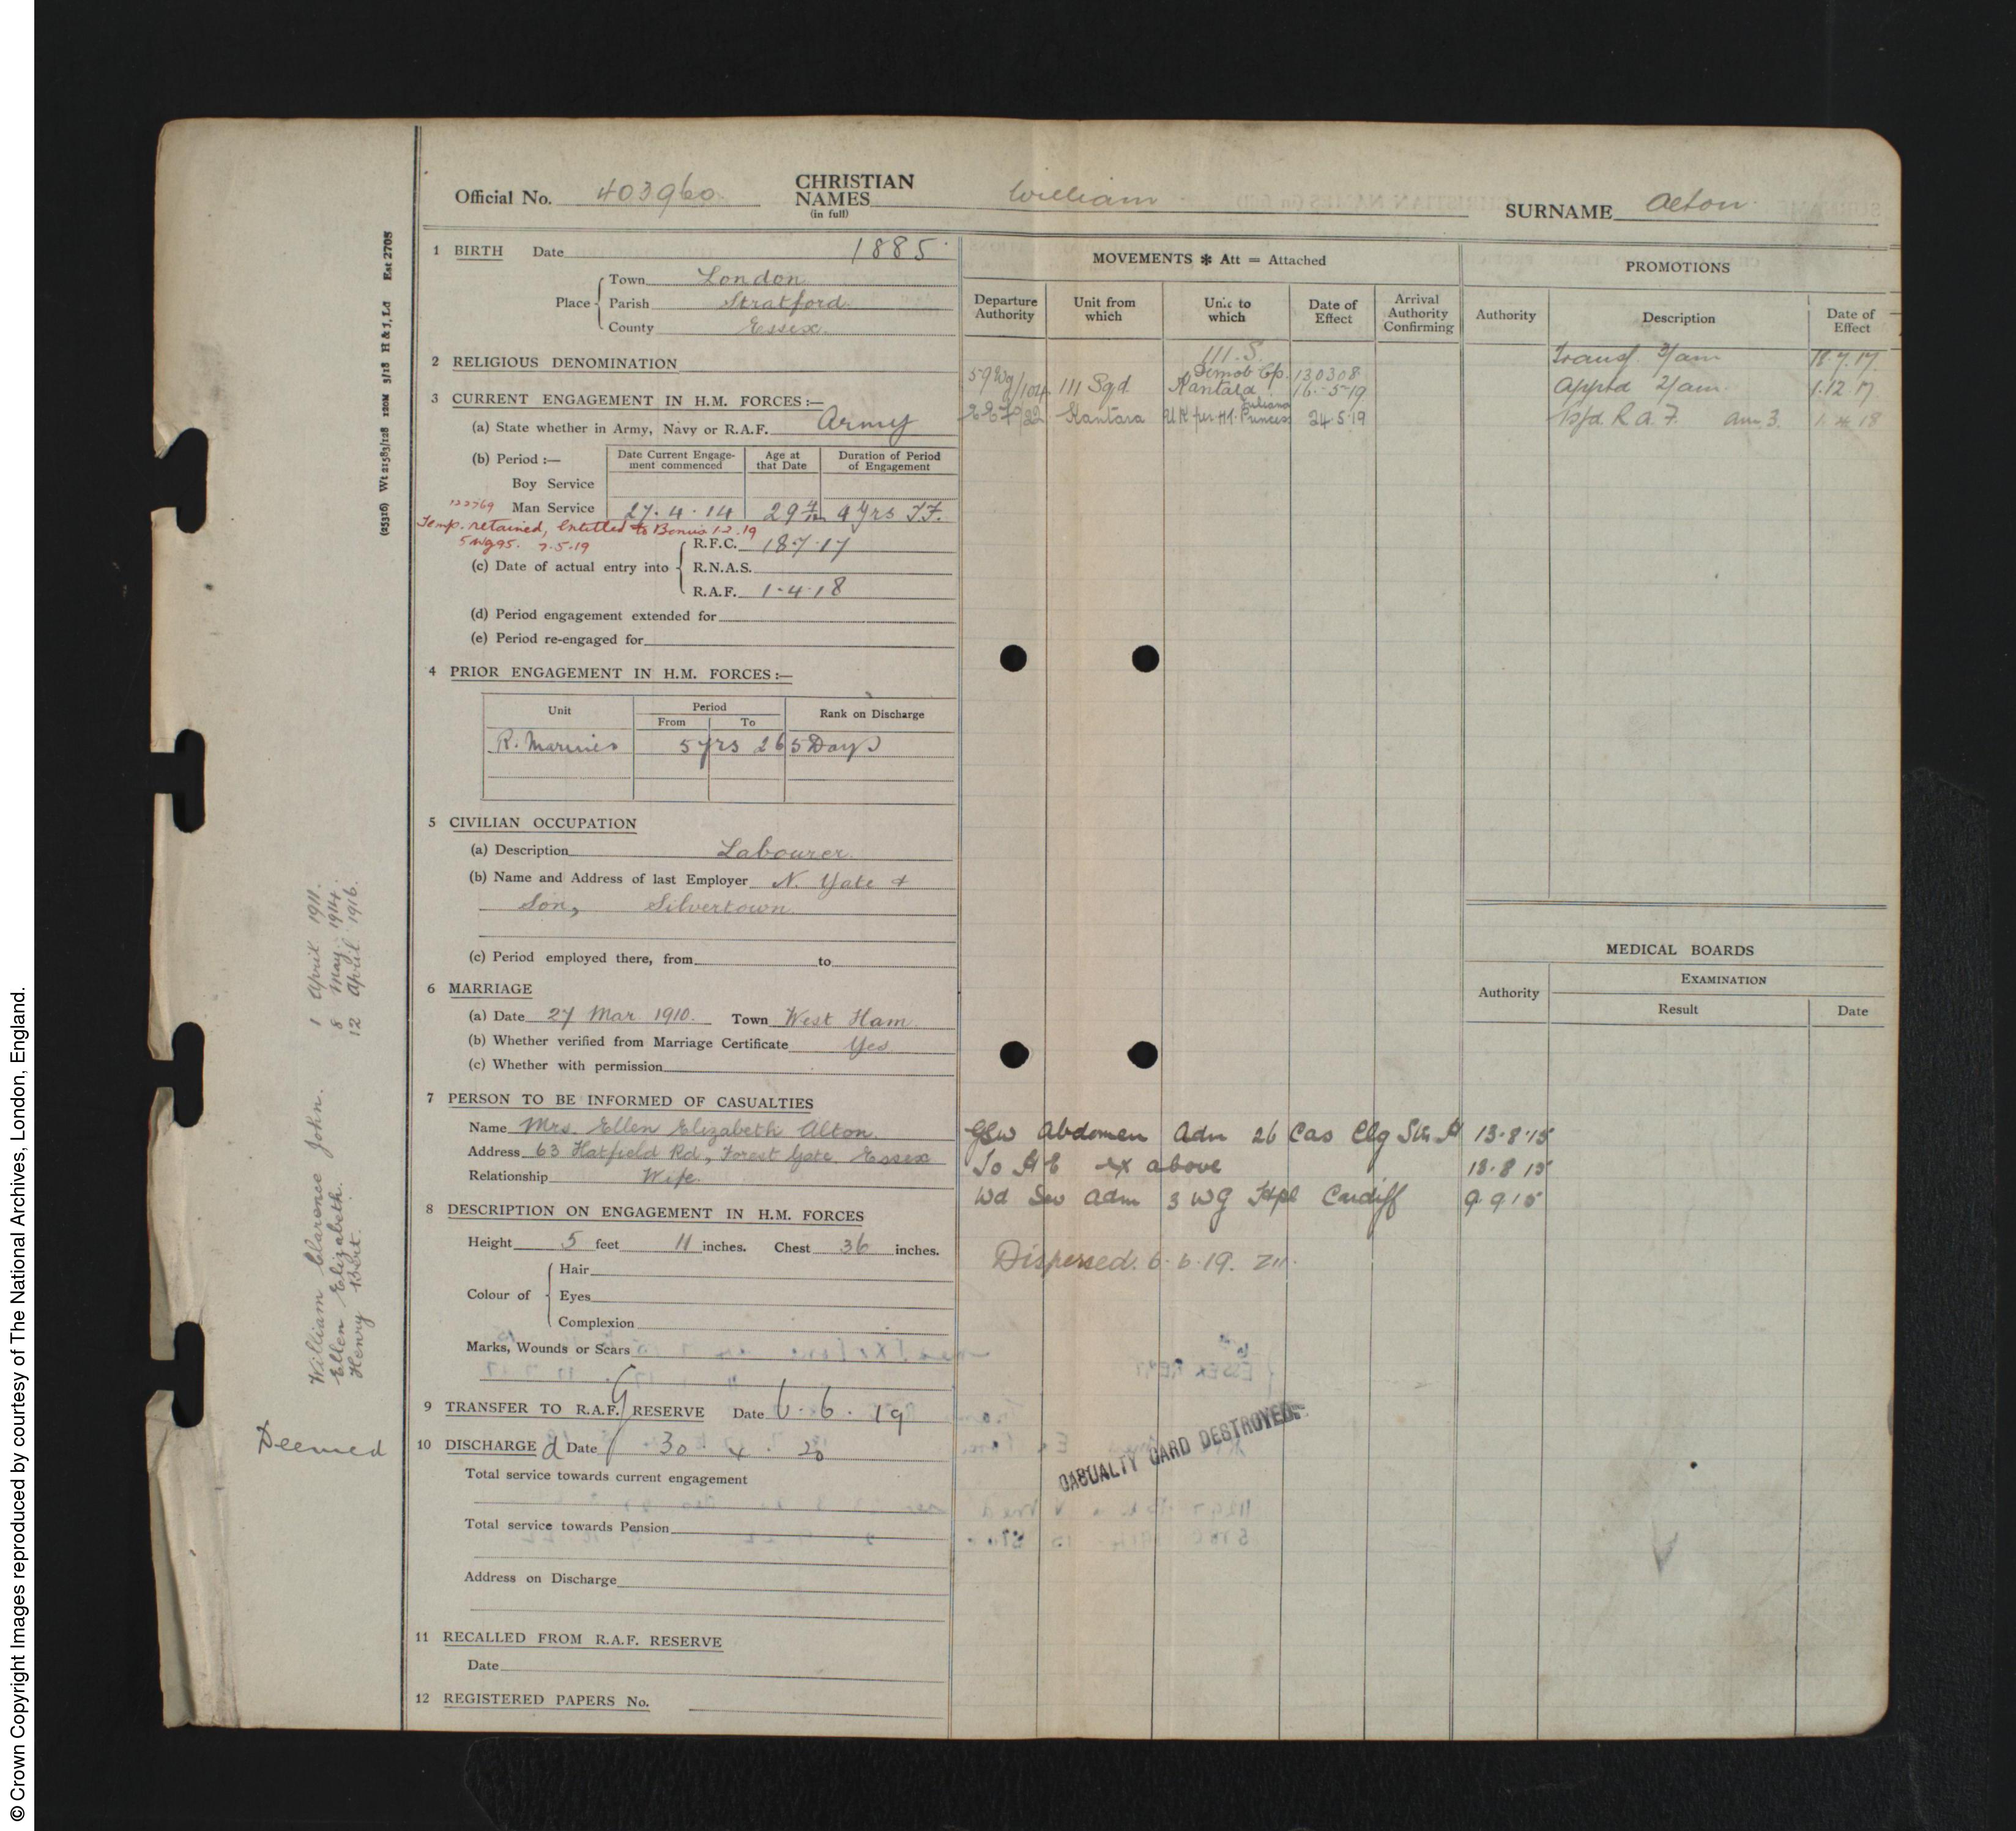 Official No. 403960 CHRISTIAN NAMES (in full) William SURNAME Alton
1 BIRTH Date 1885
Place Town London
Parish Stratford
County Essex
2 RELIGIOUS DENOMINATION
3 CURRENT ENGAGEMENT IN H.M. FORCES :—
(a) State whether in Army, Navy or R.A.F. Army
(b) Period :— Date Current Engage-ment commenced Age at that Date Duration of Period of Engagement
Boy Service
Man Service 27.4.14 29 4 yrs T.F.
Temp. retained, Entitled to Bonus 1.2.19
5 Wg 95. 7.5.19
(c) Date of actual entry into R.F.C. 18.7.17
R.N.A.S.
R.A.F. 1.4.18
(d) Period engagement extended for
(e) Period re-engaged for
4 PRIOR ENGAGEMENT IN H.M. FORCES :—
Unit Period From To Rank on Discharge
R. Marines 5 yrs 265 Days
5 CIVILIAN OCCUPATION
(a) Description Labourer
(b) Name and Address of last Employer N. Yate &
Son, Silvertown
(c) Period employed there, from to
6 MARRIAGE
(a) Date 27 Mar 1910. Town West Ham
(b) Whether verified from Marriage Certificate Yes
(c) Whether with permission
7 PERSON TO BE INFORMED OF CASUALTIES
Name Mrs. Ellen Elizabeth Alton.
Address 63 Hatfield Rd, Forest Gate. Essex
Relationship Wife.
8 DESCRIPTION ON ENGAGEMENT IN H.M. FORCES
Height 5 feet 11 inches. Chest 36 inches.
Colour of Hair
Eyes
Complexion
Marks, Wounds or Scars
9 TRANSFER TO R.A.F. RESERVE Date 6.6.19
G
10 DISCHARGE d Date 30 . 4 . 20
Total service towards current engagement
Total service towards Pension
Address on Discharge
11 RECALLED FROM R.A.F. RESERVE
Date
12 REGISTERED PAPERS No.
MOVEMENTS ✻ Att = Attached
Departure Authority Unit from which Unit to which Date of Effect Arrival Authority Confirming
111 S. 13 03 08
59 Wg/104 111 Sqd. Demob Cp. Kantara 16-5-19
EEF/22 Kantara UK per HT. Princess Juliana 24.5.19
GSW Abdomen Adm 26 Cas Clg Stn 13.8.15
To above 13.8.15
Wd Sev adm 3 WG Hpl Cardiff 9 9 15
Dispersed. 6.6.19.
CASUALTY CARD DESTROYED
PROMOTIONS
Authority Description Date of Effect
Transf. 3/am 18.7.17.
Appted 2/am 1.12.17
Tsfd. R.A.F. am.3. 1.4.18
MEDICAL BOARDS
Authority EXAMINATION
Result Date
(25316) Wt 21583/128 120M 3/18 H & J, Ld Est 2705
William Clarence John. 1 April 1911.
Ellen Elizabeth. 8 May. 1914.
Henry Bert. 12 April 1916.
Deemed
© Crown Copyright Images reproduced by courtesy of The National Archives, London, England.